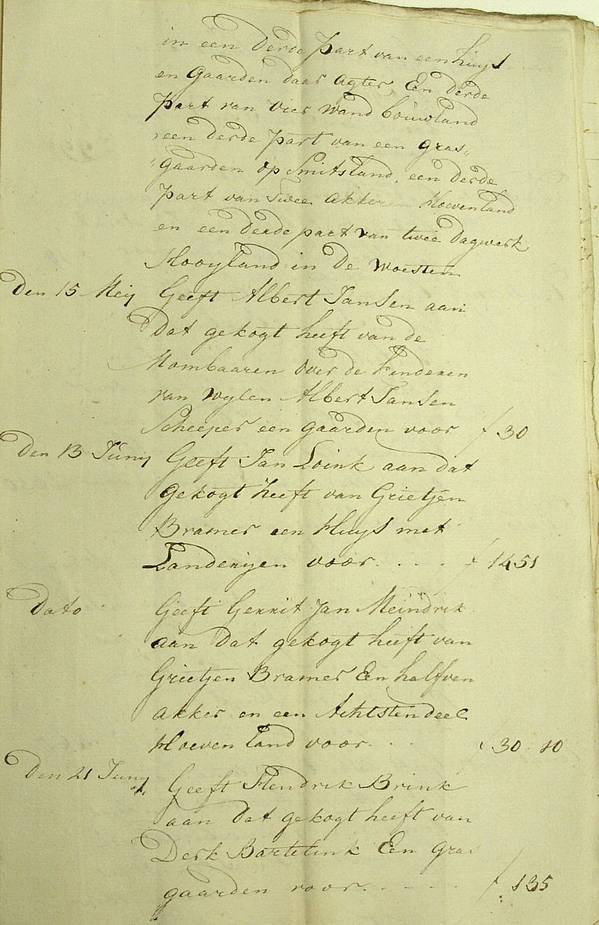 in een derde Part van een huys
en Gaarden daar agter, En derde
Part van vier wand bouwland
een derde Part van een gras-
"gaarden op Smitsland, een derde
Part van twee akker Hoevenland
en een derde part van twee dagwerk
Hooyland in de Woesten
Den 15 Meij Geeft Albert Jansen aan
Dat gekogt heeft van de
Mombaaren over de Kinderen
van wylen Albert Jansen
Scheeper een gaarden voor f 30
Den 13 Juny Geeft Jan Loink aan dat
gekogt heeft van Grietjen
Bramer een Huys met
Landerijen voor . . . . f 1451
Dato Geeft Gerrit Jan Meindrik
aan dat gekogt heeft van
Grietjen Bramer Een halfven
akker en een Achtstendeel
Hoeven land voor . . 30 10
Den 21 Juny Geeft Hendrik Brink
aan dat gekogt heeft van
Derk Bartelink Een gras
gaarden voor . . . . . f 135